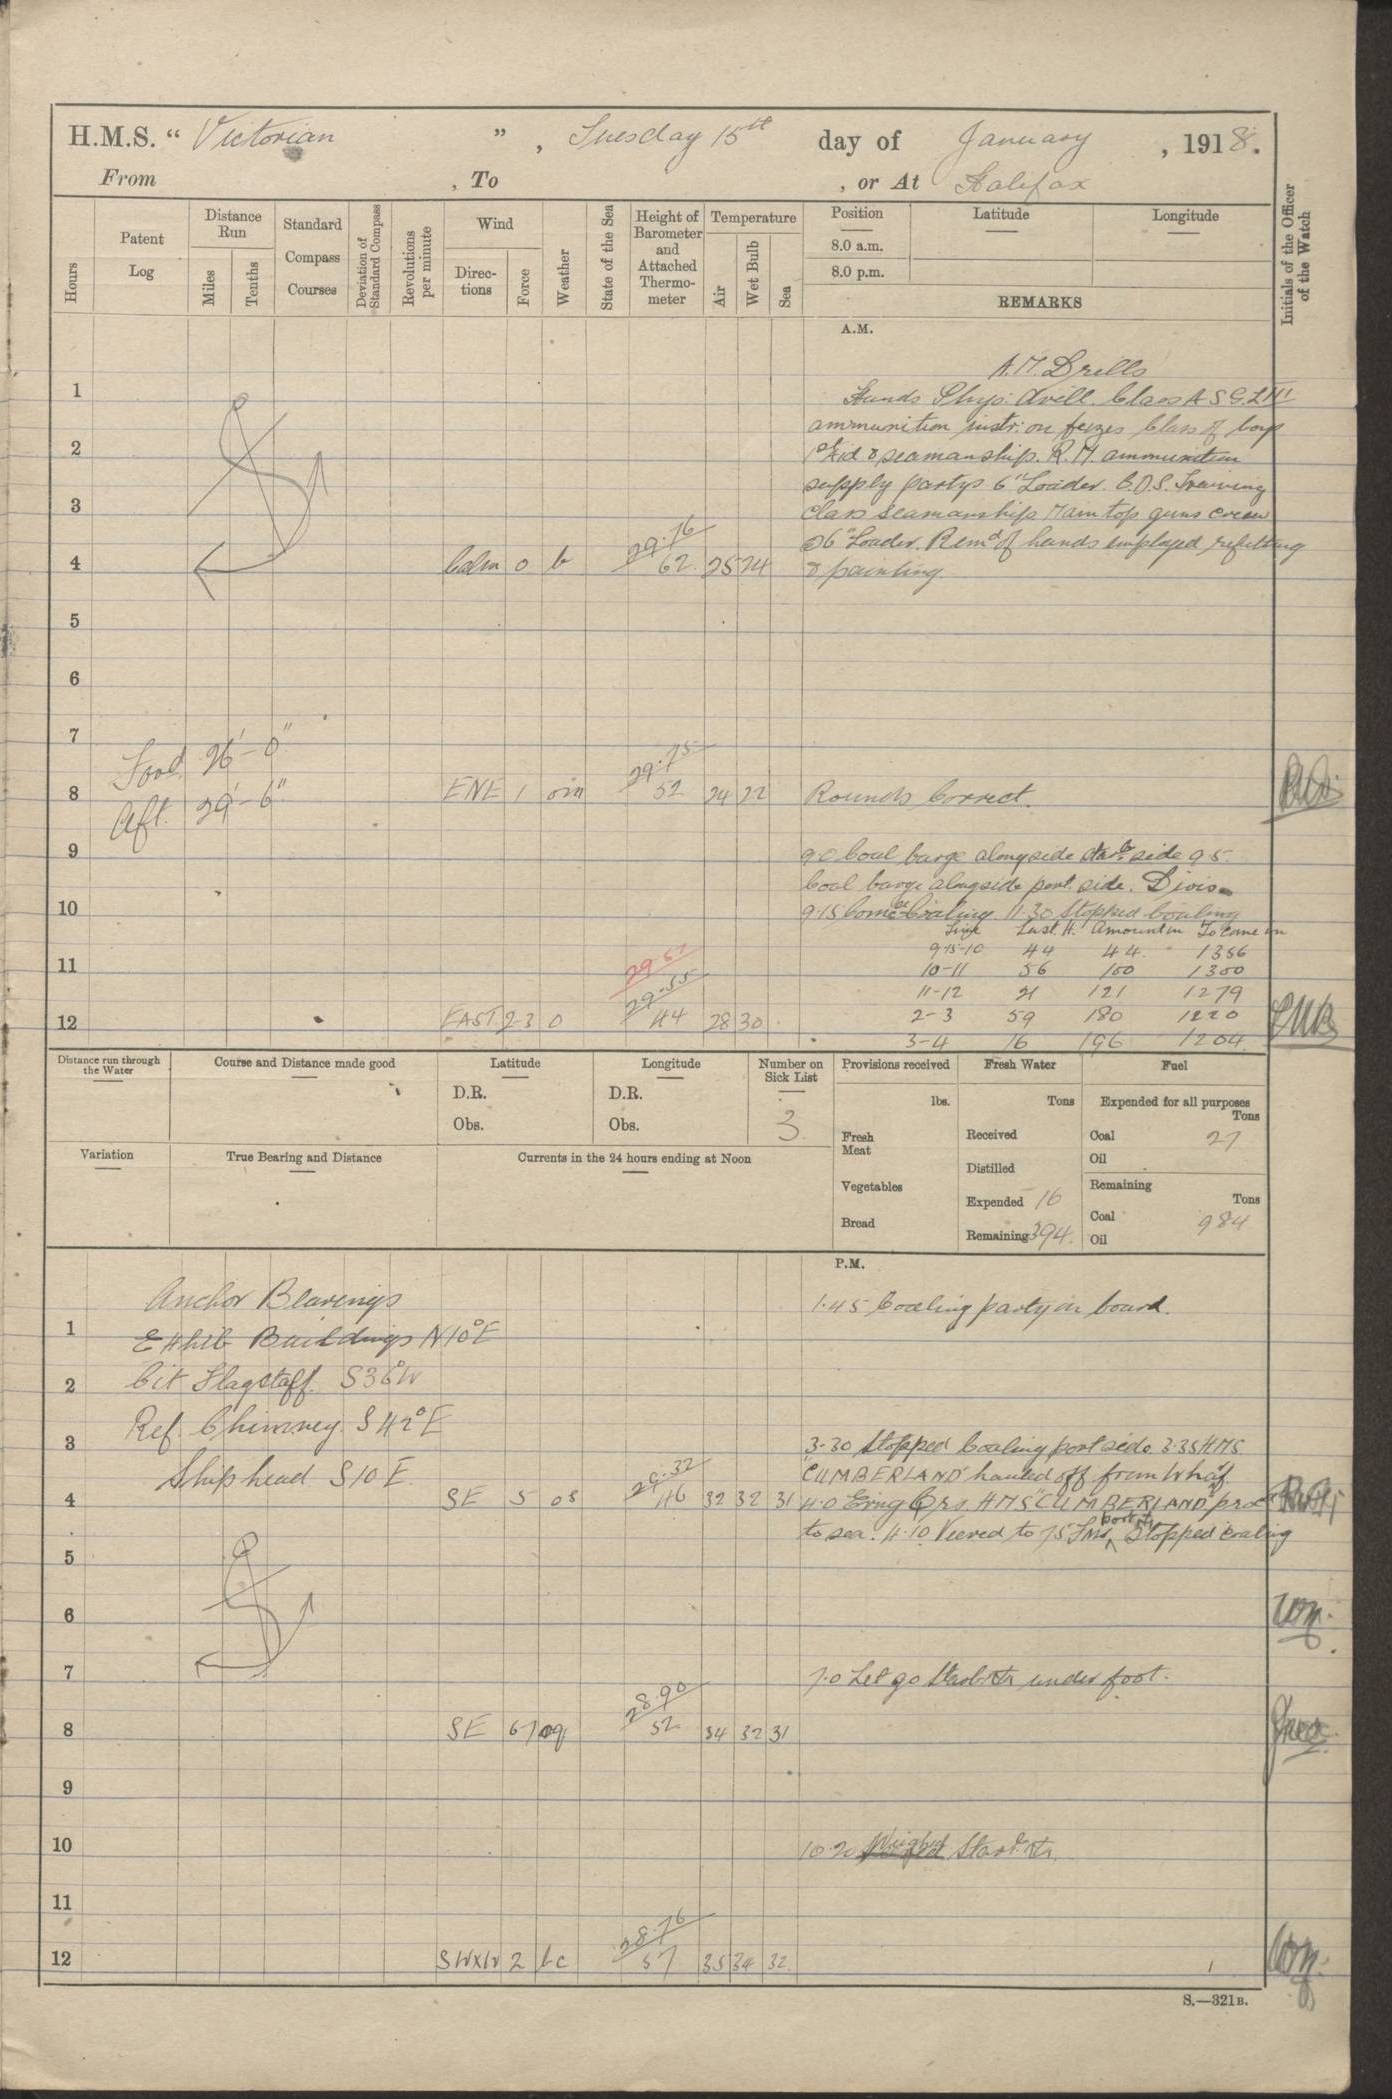 H.M.S. " Victorian ", Tuesday 15th day of January, 1918.
From , To , or At Halifax
Hours
Patent Log
Distance Run
Miles
Tenths
Standard Compass Courses
Deviation of Standard Compass
Revolutions per minute
Wind
Directions
Force
Weather
State of the Sea
Height of Barometer and Attached Thermometer
Temperature
Air
Wet Bulb
Sea
Position
Latitude
Longitude
8.0 a.m.
8.0 p.m.
REMARKS
Initials of the Officer of the Watch
A.M.
A.M. Drills
1 Hands Phys: drill. Class A S.G.L III
ammunition instr: on fuzes Class of boys
2 & seamanship. R.M. ammunition
supply partys 6" Loader. C.D.S. Training
3 Class Seamanship. Main top guns crew
@ 6" Loader. Remd of hands employed refitting
4 Calm 0 b 29.76 62 25 24 & painting.
5
6
7
Ford. 26'-0"
8 ENE 1 om 29.75 52 24 22 Rounds Correct.
Aft. 29'-6"
9 9.0 Coal barge alongside starb side 9.5
Coal barge alongside port side. Divis
10 9.15 Comce Coaling. 11.30 Stopped Coaling
Time Last H. Amount in To come in
9.15-10 44 44 1356
11 29.57 10-11 56 100 1300
29.55 11-12 21 121 1279
12 EAST 2-3 0 44 28 30 2-3 59 180 1220
3-4 16 196 1204
Distance run through the Water
Course and Distance made good
Latitude
D.R.
Obs.
Longitude
D.R.
Obs.
Number on Sick List
3
Provisions received
lbs.
Fresh Meat
Vegetables
Bread
Fresh Water
Tons
Received
Distilled
Expended 16
Remaining 394.
Fuel
Expended for all purposes
Tons
Coal 27
Oil
Remaining
Tons
Coal 984
Oil
Variation
True Bearing and Distance
Currents in the 24 hours ending at Noon
P.M.
Anchor Bearings 1.45 Coaling party on board.
1 Exhib Buildings N10°E
2 Cit Flagstaff. S36°W
Ref. Chimney. S42°E
3 3.30 Stopped Coaling port side. 3.35 HMS
Ship head S10°E "CUMBERLAND" hauled off from Wharf.
4 SE 5 os 29.32 46 32 32 31 4.0 Evng Qrs. HMS "CUMBERLAND" proc
to sea. 4.10 Veered to 75 Fms port Stopped coaling
5
6
7 7.0 Let go Starb under foot.
8 SE 6-7 oq 28.90 52 34 32 31
9
10 10.20 Weighed Starb
11
12 SWxW 2 bc 28.76 57 35 34 32
S.—321B.